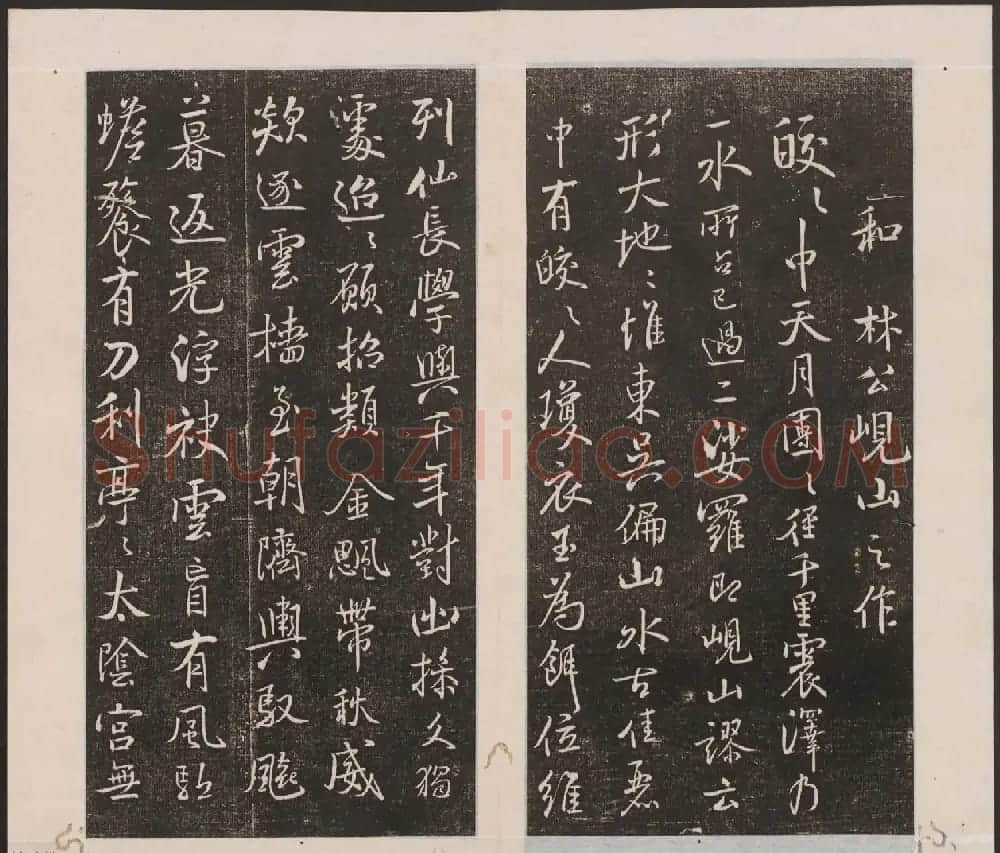 和林公峴山之作
皎〻中天月團〻徑千里震澤乃
一水所占已過二娑羅即峴山謬云
形大地〻惟東吳偏山水古佳麗
中有皎〻人瓊衣玉為餌位維
列仙長學與千年對幽操久獨
處迢〻願招類金飔帶秋威
欻逐雲檣至朝隮輿馭飈
暮返光浮袂雲盲有風驅
蟾餮有刀利亭〻太陰宮無
Shufaziliao.COM